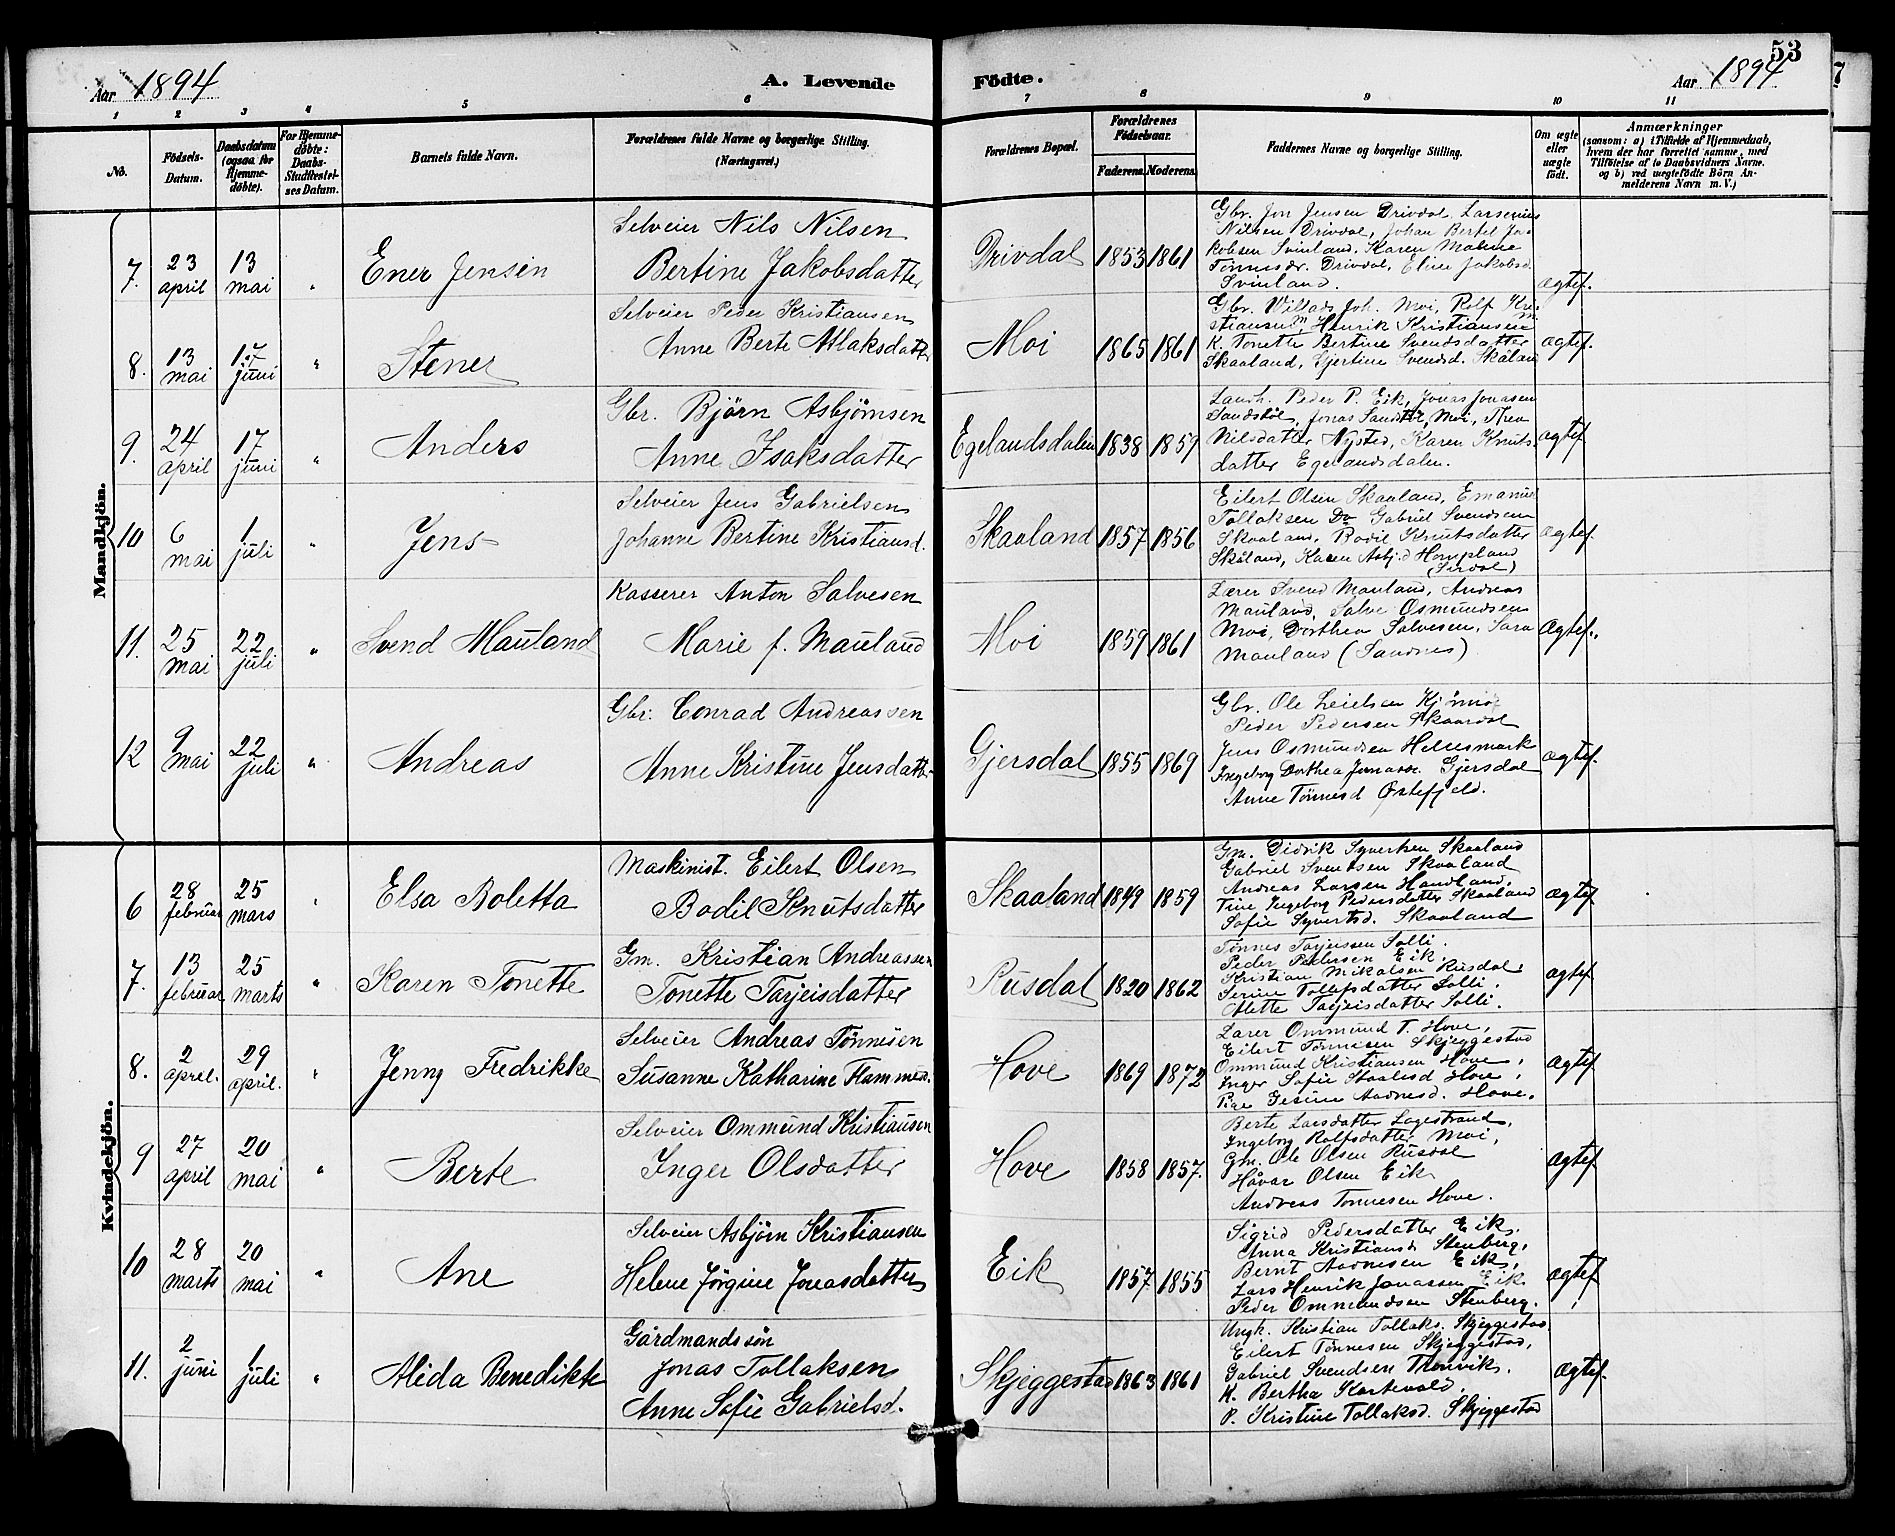 53
Aar 1894
A. Levende
Födte.
Aar 1894
1 2 3 4 5 6 7 8 9 10 11
No.
Födsels-Datum.
Daabsdatum (ogsaa for Hjemme-döbte).
For Hjemme-döbte: Daabs-Stadfæstel-ses Datum.
Barnets fulde Navn.
Forældrenes fulde Navne og borgerlige Stilling.
(Næringsvei.)
Forældrenes Bopæl.
Forældrenes Födselsaar.
Faderens Moderens
Faddernes Navne og borgerlige Stilling.
Om ægte eller uægte født.
Anmærkninger
(saasom: a) i Tilfælde af Hjemmedaab, hvem der har forrettet samme, med Tilföielse af to Daabsvidners Navne. og b) ved uægtefödte Börn An-melderens Navn m. V.)
Mandkjön.
7. 23 april 13 mai " Ener Jensen
Selveier Nils Nilsen
Bertine Jakobsdatter
Drivdal 1853 1861
Gbr. Jon Jensen Drivdal, Larsenius
Nilsen Drivdal, Johan Bertel Ja-
kobsen Svinland, Karen Maline
Tønnesdr. Drivdal, Eline Jakobsd.
Svinland.
Ægtef.
8. 13 mai 17 juni " Stener
Selveier Peder Kristiansen
Anne Berte Atlaksdatter
Moi 1865 1861
Gbr. Villads Joh. Moi, Rolf Kri-
stiansen M, Henrik Kristiansen M.
K. Tonette Bertine Svendsdatter
Skaaland, Gjertine Svendsd. Skålan
Ægtef.
9. 24 april 17 juni " Anders
Gbr. Björn Asbjörnsen
Anne Isaksdatter
Egelandsdalen 1838 1859
Landh. Peder P. Eik, Jonas Jonasen
Sandstøl, Jonas Sandstøl, Moi, Thea
Nilsdatter Nysted, Karen Knuts-
datter Egelandsdalen.
Ægtef.
10 6 mai 1 juli " Jens
Selveier Jens Gabrielsen
Johanne Bertine Kristiansd.
Skaaland 1857 1856
Eilert Olsen Skaaland, Emanuel
Tollaksen Do Gabriel Svendsen
Skaaland, Bodil Knutsdatter
Skåland, Karen Asbj.d Hompland
(Sirdal)
Ægtef.
11. 25 mai 22 juli " Svend Mauland
Kasserer Anton Salvesen
Marie f. Mauland
Moi 1859 1861
Lærer Svend Mauland, Andreas
Mauland, Salve Osmundsen
Moi, Dorthea Salvesen, Sara
Mauland (Sandnes)
Ægtef.
12 9 mai 22 juli " Andreas
Gbr. Conrad Andreassen
Anne Kristine Jensdatter
Gjersdal 1855 1869
Gbr. Ole Leielsen
Peder Pedersen Skaardal
Jens Osmundsen Hellesmark
Ingeborg Dorthea Jonasdr. Gjersdal
Anne Tønnesd Østefjeld.
Ægtef.
Kvindekjön.
6 28 februar 25 mars " Elsa Boletta
Maskinist. Eilert Olsen
Bodil Knutsdatter
Skaaland 1849 1859
Gm. Didrik Syvertsen Skaaland
Gabriel Sventsen Skaaland
Andreas Larsen Handland,
Tine Ingeborg Pedersdatter Skaaland
Sofie Syvertsd. Skaaland
Ægtef
7. 13 februar 25 marts " Karen Tonette
Gm. Kristian Andreassen
Tonette Tarjeisdatter
Rusdal 1820 1862
Tønnes Tarjeisen Solli.
Peder Pedersen Eik,
Kristian Mikalsen Rusdal,
Serine Tollefsdatter Solli,
Alette Tarjeisdatter Solli.
Ægtef
8. 2 april. 29 april. " Jenny Fredrikke
Selveier Andreas Tönnesen
Susanne Katharine Flammed.
Hove 1869 1872
Lærer Ommund T. Hove,
Eilert Tønnesen Skjeggestad
Ommund Kristiansen Hove,
Inger Sofie Staalesd Hove,
Pige Gesine Aadnesd. Hove.
Ægtef
9 27 april 20 mai " Berte
Selveier Ommund Kristiansen
Inger Olsdatter
Hove 1858 1857.
Berte Larsdatter Løgestrand,
Ingeborg Rolfsdatter Moi,
Gm. Ole Olsen Rusdal
Håvar Olsen Eik
Andreas Tonnesen Hove.
Ægtef
10 28 marts 20 mai " Ane
Selveier Asbjørn Kristiansen
Helene Jörgine Jonasdatter
Eik 1857 1855
Sigrid Pedersdatter Eik,
Anna Kristiansd. Stenberg,
Bernt Aadnesen Eik,
Lars Henrik Jonassen Eik
Peder Ommundsen Stenberg.
Ægtef
11. 2 juni 1 juli " Alida Benedikte
Gårdmandssön
Jonas Tollaksen
Anne Sofie Gabrielsd.
Skjeggestad 1863 1861
Ungk. Kristian Tollaks. Skjeggestad,
Eilert Tønnesen Skjeggestad,
Gabriel Svendsen Thorsvik,
K. Bertha Kartevold,
P. Kristine Tollaksd. Skjeggestad
Ægtef.